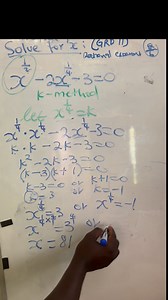 Solve for x: (GRD 11)
Rational exponents
x^½ - 2x^¼ - 3 = 0
k-method
let x^¼ = k
x^¼ · x^¼ - 2x^¼ - 3 = 0
k · k - 2k - 3 = 0
k² - 2k - 3 = 0
(k - 3)(k + 1) = 0
k - 3 = 0 or k + 1 = 0
k = 3 or k = -1
x^¼ = 3 or x^¼ = -1
x = 3⁴ or
x = 81